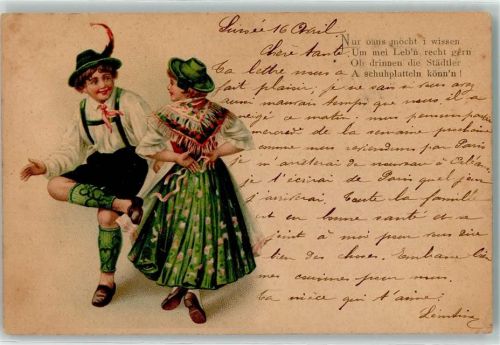 Soirée 16 Avril
Nur oans möcht i wissen
Um mei Leb'n recht gern
Ob drinnen die Städtler
A schuhplatteln könn'n!
Chère tante
Ta lettre nous a
fait plaisir, je ne sais si vous avez
mauvais temps que nous, il a
neigé ce matin, nous pensons partir
mercredi de la semaine prochaine
comme nous reviendrons par Paris
je m'arrêterai de nouveau à
je t'écrirai de Paris quel jour
j'arriverai. Toute la famille
est en bonne santé et se
joint à moi pour vous dire
bien des choses. Embrasse bien
mes cousines pour moi.
Ta nièce qui t'aime: